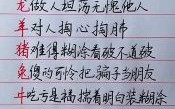 龙做人坦荡无愧他人
羊对人掏心掏肺
猪难得糊涂看破不道破
兔傻的可怜把骗子当朋友
牛吃亏是福揣着明白装糊涂